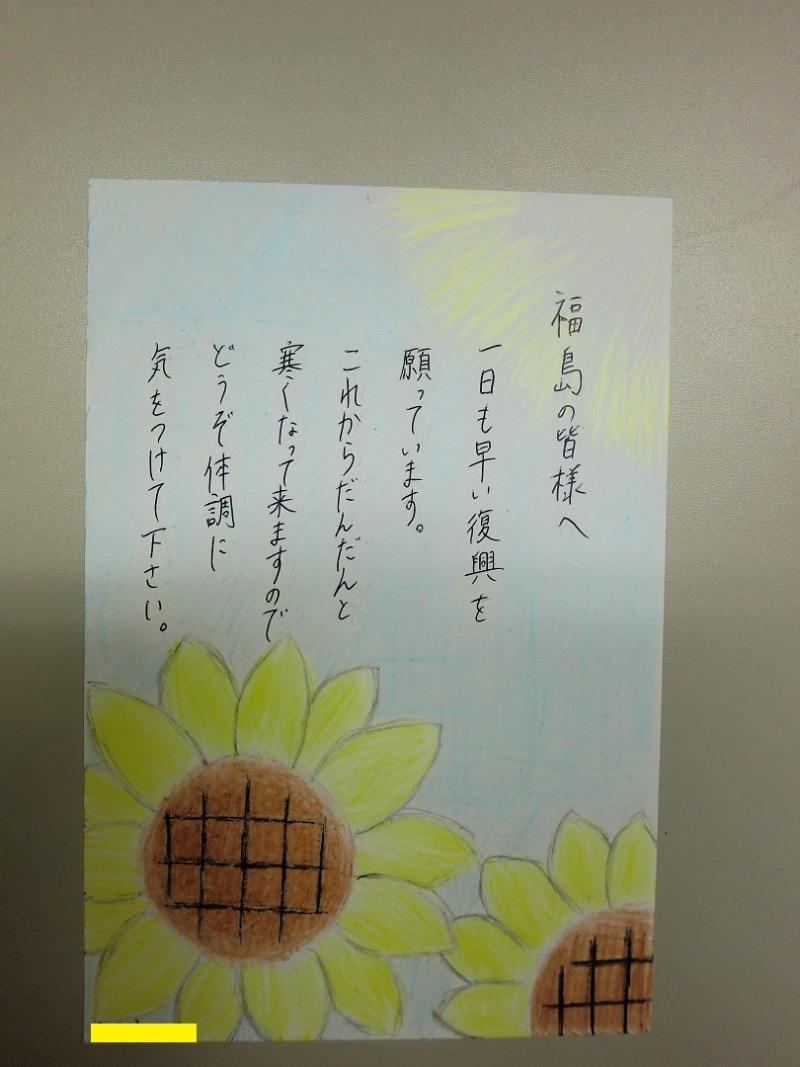 福島の皆様へ
一日も早い復興を
願っています。
これからだんだんと
寒くなって来ますので
どうぞ体調に
気をつけて下さい。